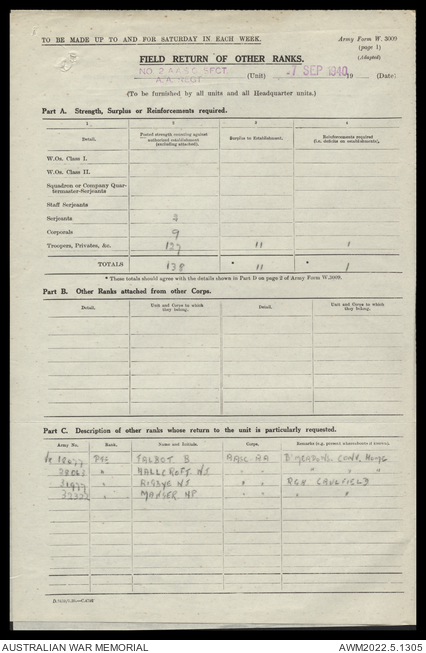 TO BE MADE UP TO AND FOR SATURDAY IN EACH WEEK.
Army Form W. 3009
(page 1)
(Adapted)
FIELD RETURN OF OTHER RANKS.
NO 2 A.A.S.C. SECT.
A.A. REGT
(Unit)
7 SEP 1940
19
(Date)
(To be furnished by all units and all Headquarter units.)
Part A. Strength, Surplus or Reinforcements required.
1 2 3 4
Detail. Posted strength counting against authorised establishment (excluding attached). Surplus to Establishment. Reinforcements required (i.e. deficits on establishments).
W.Os. Class I.
W.Os. Class II.
Squadron or Company Quar-
termaster-Serjeants
Staff Serjeants
Serjeants 2
Corporals 9
Troopers, Privates, &c. 127 11 1
TOTALS 138 * 11 * 1
* These totals should agree with the details shown in Part D on page 2 of Army Form W.3009.
Part B. Other Ranks attached from other Corps.
Detail. Unit and Corps to which they belong. Detail. Unit and Corps to which they belong.
Part C. Description of other ranks whose return to the unit is particularly requested.
Army No. Rank. Name and Initials. Corps. Remarks (e.g. present whereabouts if known).
PTE TALBOT B. AASC AA CONV. HOME
" HALLCROFT " " " "
" " " RGH CAULFIELD
" MANGER " " " "
AUSTRALIAN WAR MEMORIAL
AWM2022.5.1305